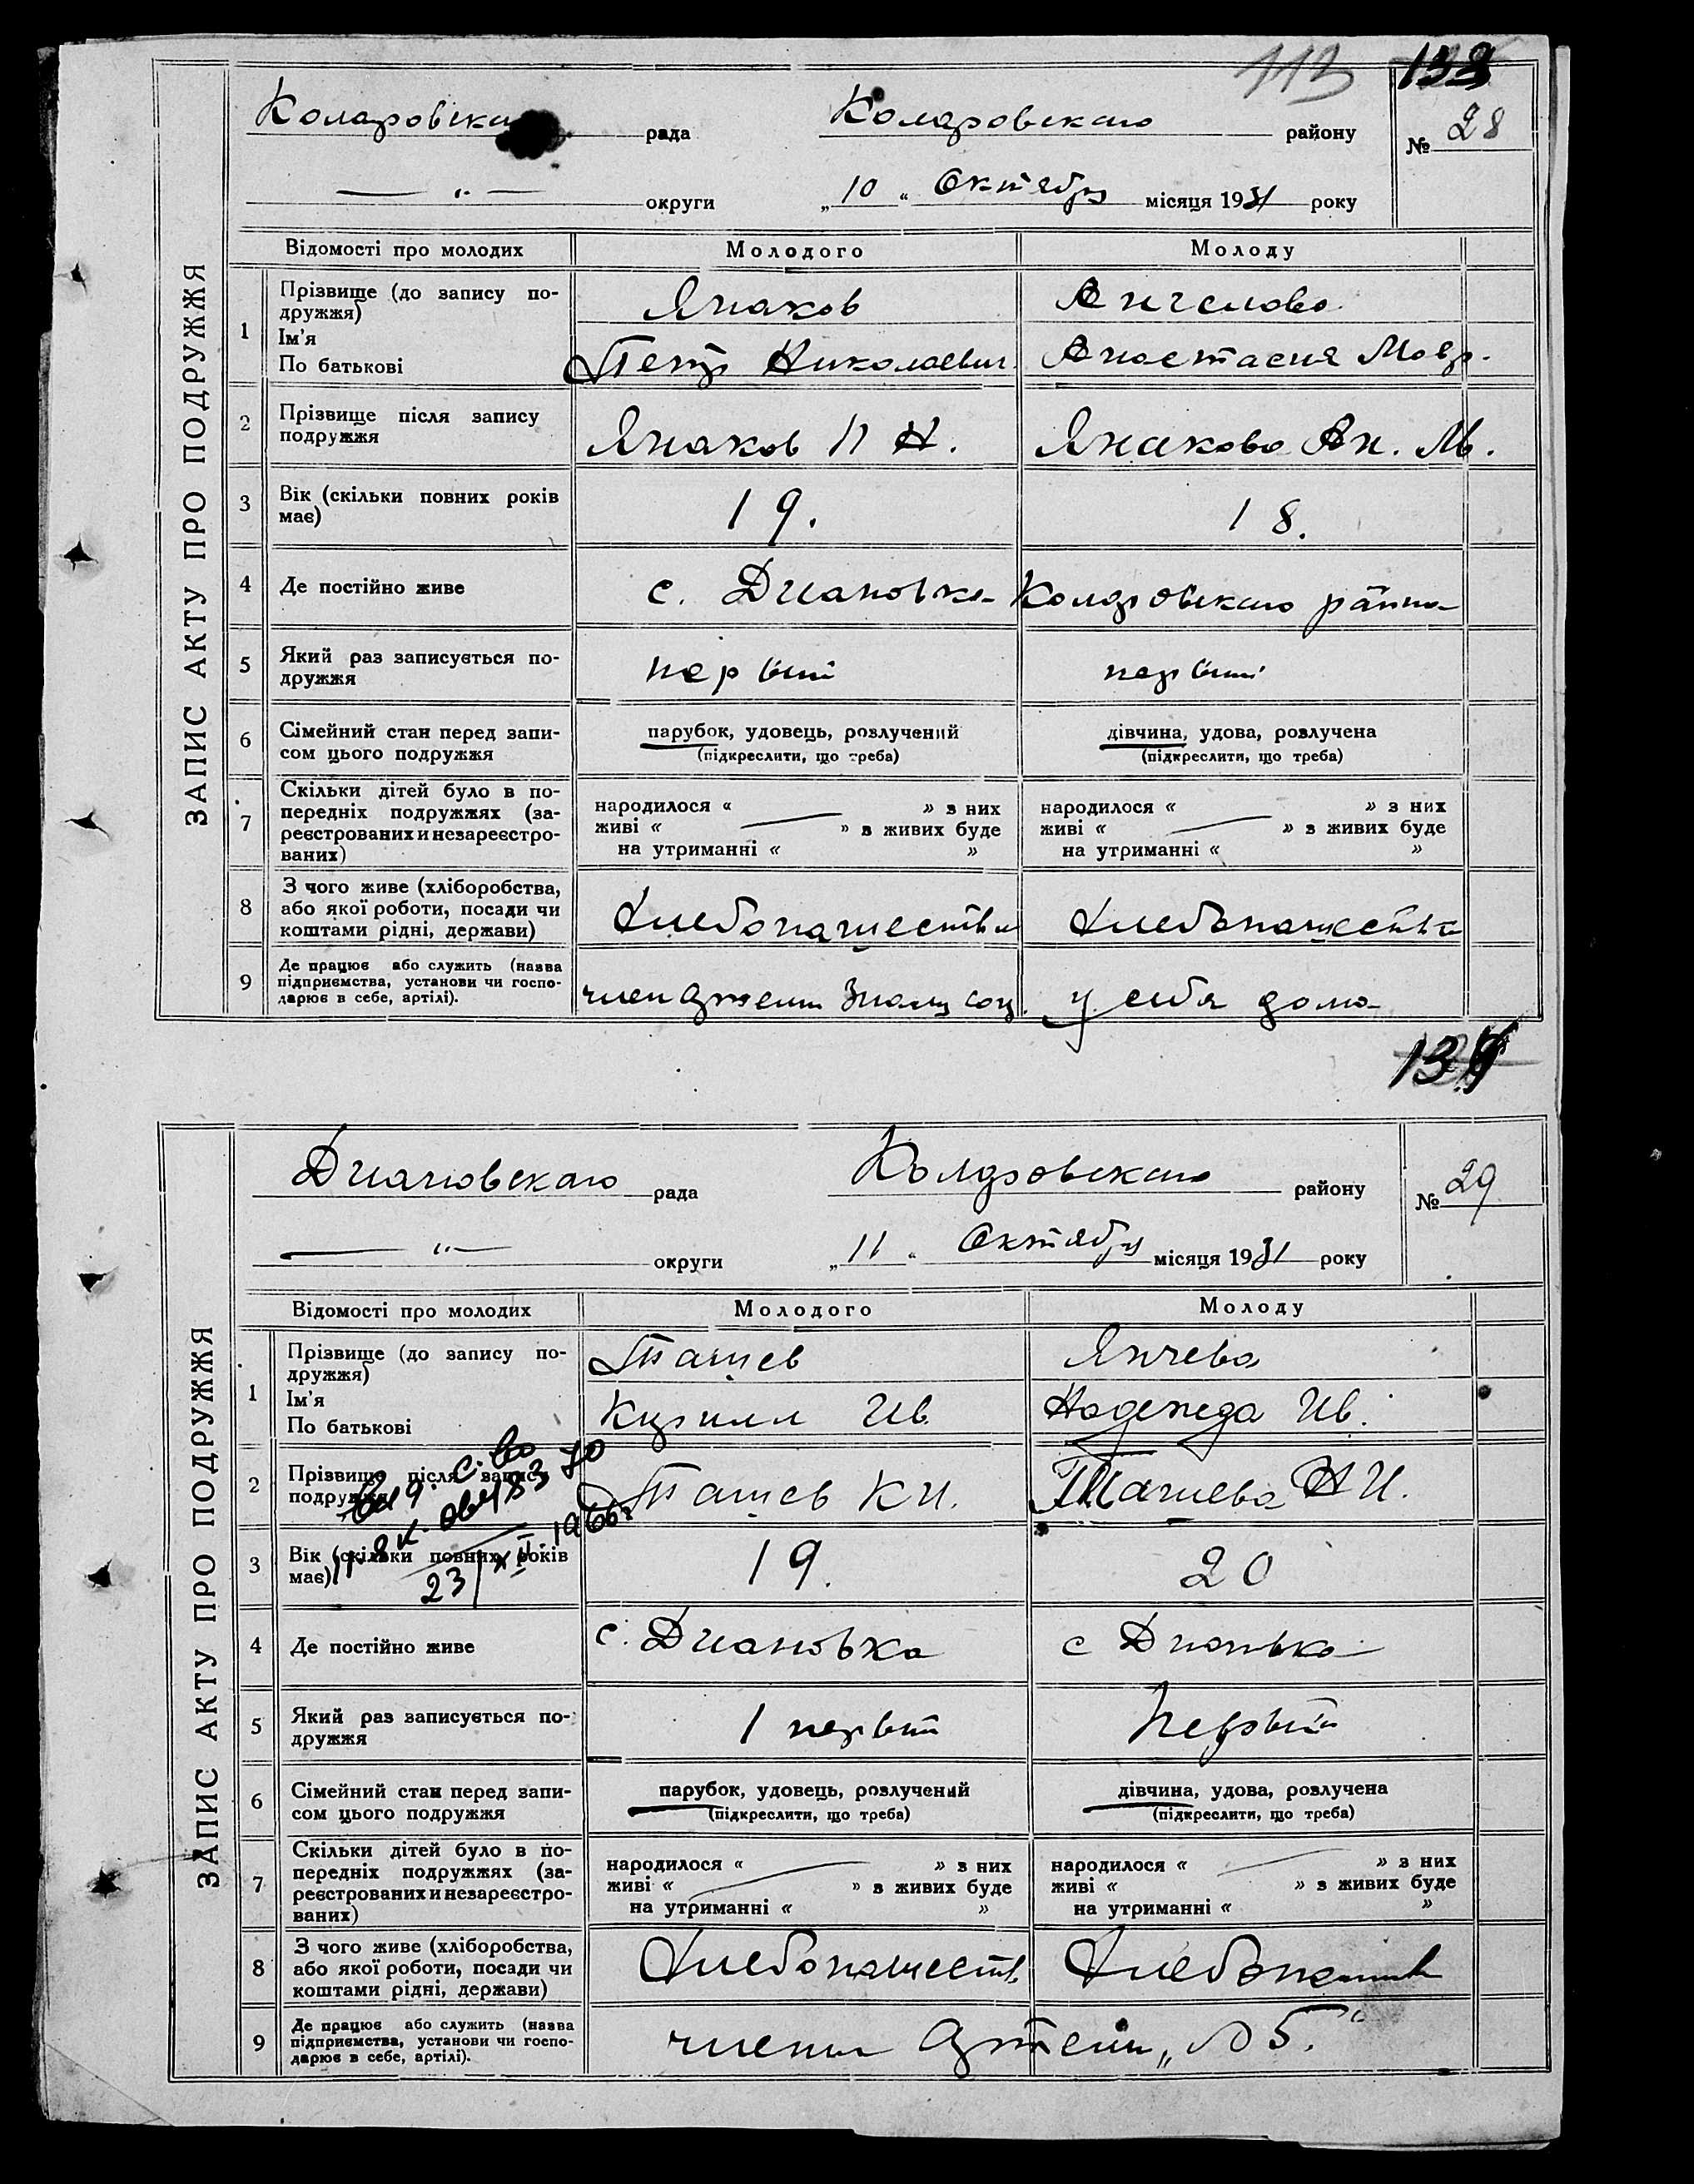 113
138
Коларовская рада Коларовского району № 28
— " — округи „ 10 “ Октября місяця 1931 року
ЗАПИС АКТУ ПРО ПОДРУЖЖЯ
Відомості про молодих Молодого Молоду
1 Прізвище (до запису по-
дружжя) Янаков Ангелова
Ім'я
По батькові Петр Николаевич. Анастасия Мавр.
2 Прізвище після запису
подружжя Янаков П Н. Янакова Ан. Мв.
3 Вік (скільки повних років
має) 19. 18.
4 Де постійно живе с. Диановка Коларовского района
5 Який раз записується по-
дружжя первый первый
6 Сімейний стан перед запи-
сом цього подружжя
парубок, удовець, розлучений
(підкреслити, що треба)
дівчина, удова, розлучена
(підкреслити, що треба)
7 Скільки дітей було в по-
передніх подружжях (за-
реєстрованих и незареєстро-
ваних)
народилося « — » з них
живі « » в живих буде
на утриманні « »
народилося « — » з них
живі « » з живих буде
на утриманні « »
8 З чого живе (хліборобства,
або якої роботи, посади чи
коштами рідні, держави) Хлебопашества Хлебопашества
9 Де працює або служить (назва
підприємства, установи чи госпо-
дарює в себе, артілі). член артели Знамя соц. у себя дома
Диановского рада Коларовского району № 29
— " — округи „ 11 “ Октября місяця 1931 року
ЗАПИС АКТУ ПРО ПОДРУЖЖЯ
Відомості про молодих Молодого Молоду
1 Прізвище (до запису по-
дружжя) Ташев Янчева
Ім'я
По батькові Кирилл Ив. Надежда Ив.
2 Прізвище після запису
подружжя Ташев К И. Ташева Н И.
с-во
23/XII-1966г
3 Вік (скільки повних років
має) 19. 20
4 Де постійно живе с. Диановка с Диановка
5 Який раз записується по-
дружжя 1 первый Первый
6 Сімейний стан перед запи-
сом цього подружжя
парубок, удовець, розлучений
(підкреслити, що треба)
дівчина, удова, розлучена
(підкреслити, що треба)
7 Скільки дітей було в по-
передніх подружжях (за-
реєстрованих и незареєстро-
ваних)
народилося « — » з них
живі « » в живих буде
на утриманні « »
народилося « — » з них
живі « » з живих буде
на утриманні « »
8 З чого живе (хліборобства,
або якої роботи, посади чи
коштами рідні, держави) Хлебопашеств Хлебопашств
9 Де працює або служить (назва
підприємства, установи чи госпо-
дарює в себе, артілі). члены Артели